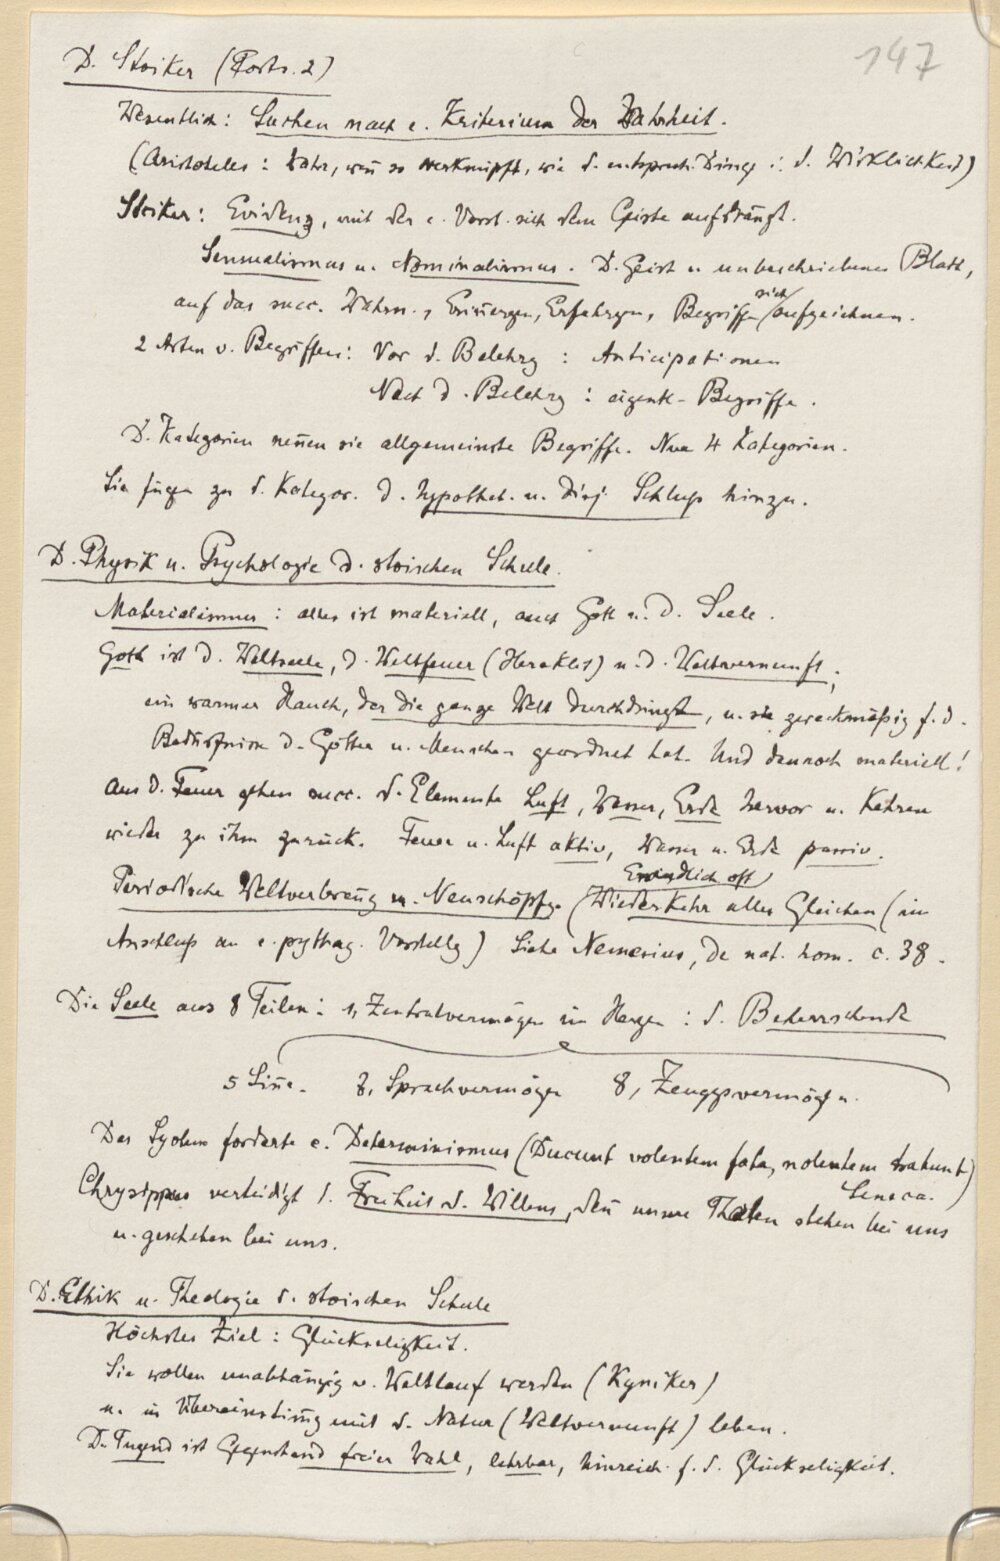 147
D. Stoiker (Forts. 2)
Wesentlich: Suchen nach e. Kriterium der Wahrheit.
(Aristoteles: Wahr, wen̄ so verknüpft, wie d. entsprech. Dinge i. d. Wirklichkeit)
Stoiker: Evidenz, mit der e. Vorst. sich dem Geiste aufdrängt.
Sensualismus u. Nominalismus. D. Geist e. unbeschriebenes Blatt,
auf das succ. Wahrn., Erin̄ergen, Erfahrgen, Begriffe sich aufzeichnen.
2 Arten v. Begriffen: Vor d. Belehrg: Anticipationen
Nach d. Belehrg: eigentl. Begriffe.
D. Kategorien nen̄en sie allgemeinste Begriffe. Nur 4 Kategorien.
Sie fügen zu d. Kategor. d. hypothet. u. disj. Schluß hinzu.
D. Physik u. Psychologie d. stoischen Schule.
Materialismus: alles ist materiell, auch Gott u. d. Seele.
Gott ist d. Weltseele, d. Weltfeuer (Heraklit) u. d. Weltvernunft;
ein warmer Hauch, der die ganze Welt durchdringt, u. sie zweckmäßig f. d.
Bedürfnisse d. Götter u. Menschen geordnet hat. Und dennoch materiell!
Aus d. Feuer gehen succ. d. Elemente Luft, Wasser, Erde hervor u. kehren
wieder zu ihm zurück. Feuer u. Luft aktiv, Wasser u. Erde passiv.
Periodische Weltverbren̄g u. Neuschöpfg. (Unendlich oft) Wiederkehr alles Gleichen (im
Anschluß an e. pythag. Vorstellg) Siehe Nemesius, de nat. hom. c. 38.
Die Seele aus 8 Teilen: 1, Zentralvermögen im Herzen: d. Beherrschende
5 Sin̄e. 7, Sprachvermögen 8, Zeuggsvermögen.
Das System forderte e. Determinismus (Ducunt volentem fata, nolentem trahunt)
Seneca.
Chrysippus verteidigt d. Freiheit d. Willens, den̄ unsere Thaten stehen bei uns
u. geschehen bei uns.
D. Ethik u. Theologie d. stoischen Schule
Höchstes Ziel: Glückseligkeit.
Sie wollen unabhängig v. Weltlauf werden (Kyniker)
u. in Übereinstim̄g mit d. Natur (Weltvernunft) leben.
D. Tugend ist Gegenstand freier Wahl, lehrbar, hinreich. f. d. Glückseligkeit.